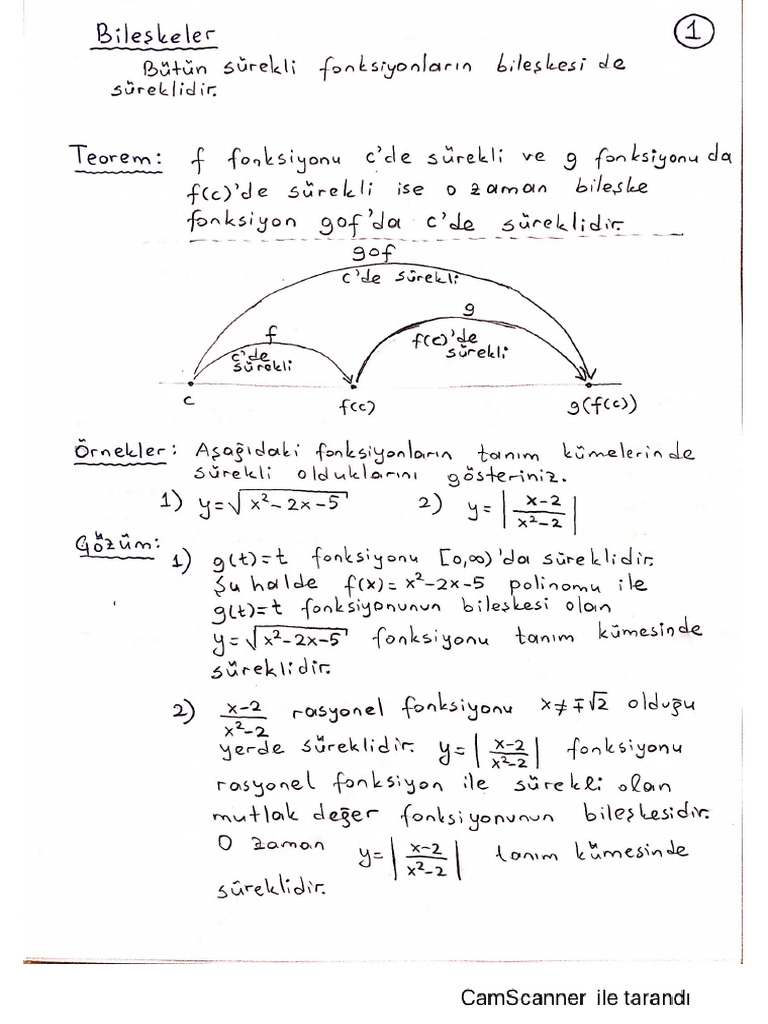 Bileşkeler
1
Bütün sürekli fonksiyonların bileşkesi de
süreklidir.
Teorem: f fonksiyonu c'de sürekli ve g fonksiyonu da
f(c)'de sürekli ise o zaman bileşke
fonksiyon gof'da c'de süreklidir.
gof
c'de sürekli
g
f
f(c)'de
sürekli
c'de
sürekli
c
f(c)
g(f(c))
Örnekler: Aşağıdaki fonksiyonların tanım kümelerinde
sürekli olduklarını gösteriniz.
1) y=√(x²-2x-5) 2) y=|(x-2)/(x²-2)|
Çözüm:
1) g(t)=t fonksiyonu [0,∞)'da süreklidir.
Şu halde f(x)=x²-2x-5 polinomu ile
g(t)=t fonksiyonunun bileşkesi olan
y=√(x²-2x-5) fonksiyonu tanım kümesinde
süreklidir.
2) (x-2)/(x²-2) rasyonel fonksiyonu x≠∓√2 olduğu
yerde süreklidir. y=|(x-2)/(x²-2)| fonksiyonu
rasyonel fonksiyon ile sürekli olan
mutlak değer fonksiyonunun bileşkesidir.
O zaman y=|(x-2)/(x²-2)| tanım kümesinde
süreklidir.
CamScanner ile tarandı